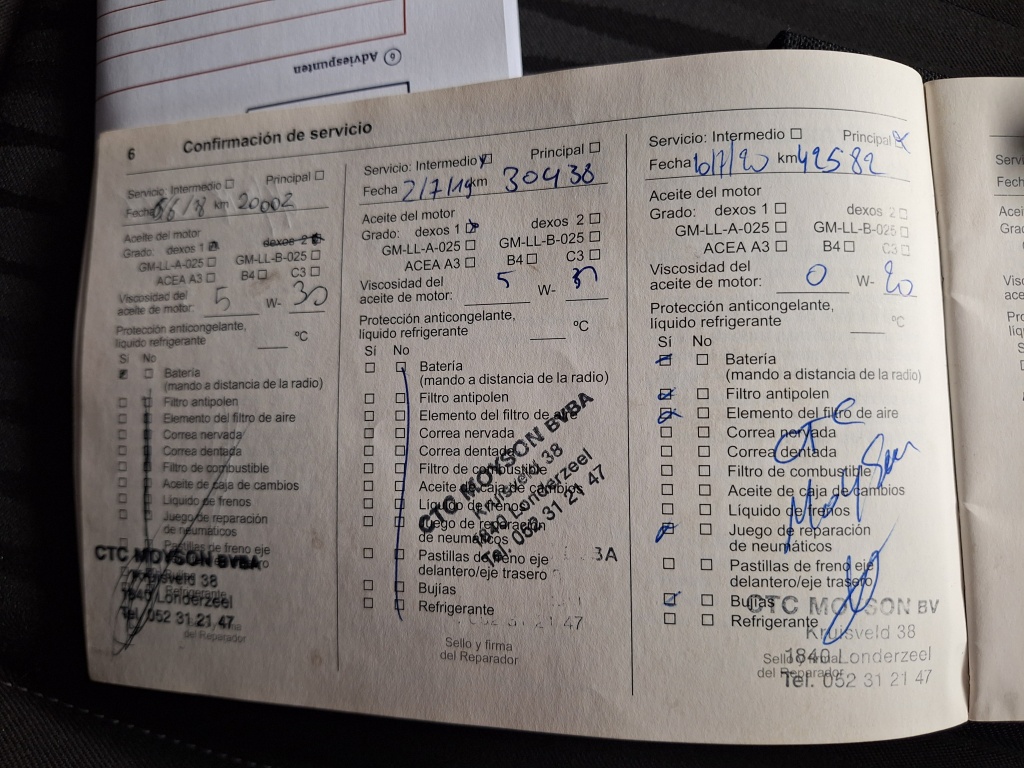 6 Adviespunten
6 Confirmación de servicio
Servicio: Intermedio Principal
Fecha 6/18 km 20002
Aceite del motor
Grado: dexos 1 dexos 2
GM-LL-A-025 GM-LL-B-025
ACEA A3 B4 C3
Viscosidad del
aceite de motor: 5 W- 30
Protección anticongelante,
líquido refrigerante ºC
Sí No
Batería
(mando a distancia de la radio)
Filtro antipolen
Elemento del filtro de aire
Correa nervada
Correa dentada
Filtro de combustible
Aceite de caja de cambios
Líquido de frenos
Juego de reparación
de neumáticos
Pastillas de freno eje
CTC MOYSON BVBA
Kruisveld 38
1840 Londerzeel
Tel. 052 31 21 47
del Reparador
Servicio: Intermedio Principal
Fecha 2/7/19 km 30438
Aceite del motor
Grado: dexos 1 dexos 2
GM-LL-A-025 GM-LL-B-025
ACEA A3 B4 C3
Viscosidad del
aceite de motor: 5 W- 30
Protección anticongelante,
líquido refrigerante ºC
Sí No
Batería
(mando a distancia de la radio)
Filtro antipolen
Elemento del filtro de aire
Correa nervada
Correa dentada
Filtro de combustible
Aceite de caja de cambios
Líquido de frenos
Juego de reparación
de neumáticos
Pastillas de freno eje
delantero/eje trasero
Bujías
Refrigerante
CTC MOYSON BVBA
Kruisveld 38
1840 Londerzeel
Tel. 052 31 21 47
Sello y firma
del Reparador
Servicio: Intermedio Principal
Fecha 10/7/20 km 42582
Aceite del motor
Grado: dexos 1 dexos 2
GM-LL-A-025 GM-LL-B-025
ACEA A3 B4 C3
Viscosidad del
aceite de motor: 0 W- 20
Protección anticongelante,
líquido refrigerante ºC
Sí No
Batería
(mando a distancia de la radio)
Filtro antipolen
Elemento del filtro de aire
Correa nervada
Correa dentada
Filtro de combustible
Aceite de caja de cambios
Líquido de frenos
Juego de reparación
de neumáticos
Pastillas de freno eje
delantero/eje trasero
Bujías
Refrigerante
CTC
Moyson
CTC MOYSON BV
Kruisveld 38
1840 Londerzeel
Tel. 052 31 21 47
Sello y firma
del Reparador